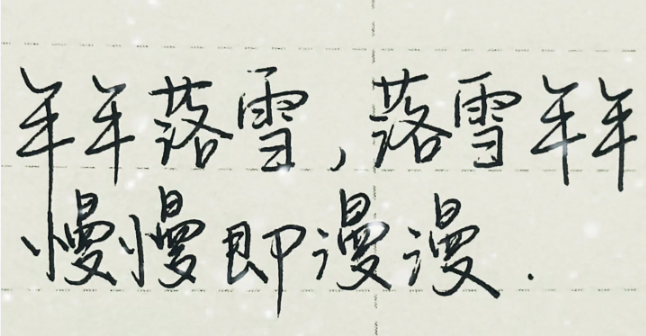 年年落雪,落雪年年
慢慢即漫漫.